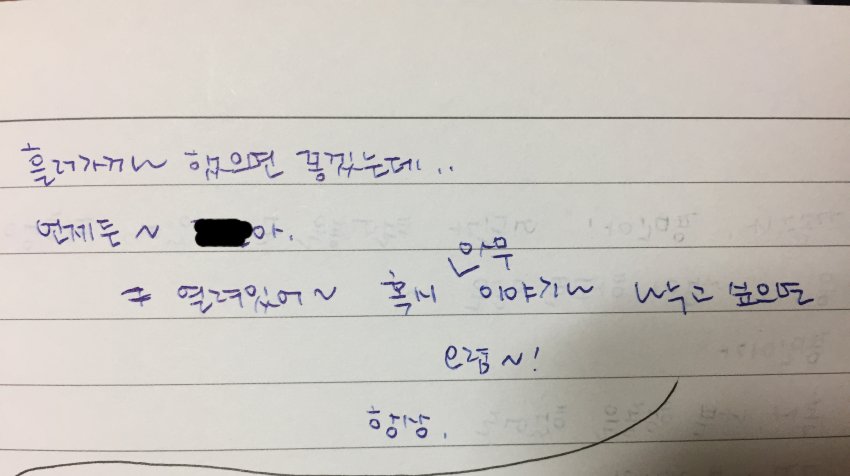 흘러가거나 했으면 좋겠는데..
언제든 ~ 아.
열려있어~ 혹시 아무 이야기나 나누고 싶으면
요렴~!
항상.